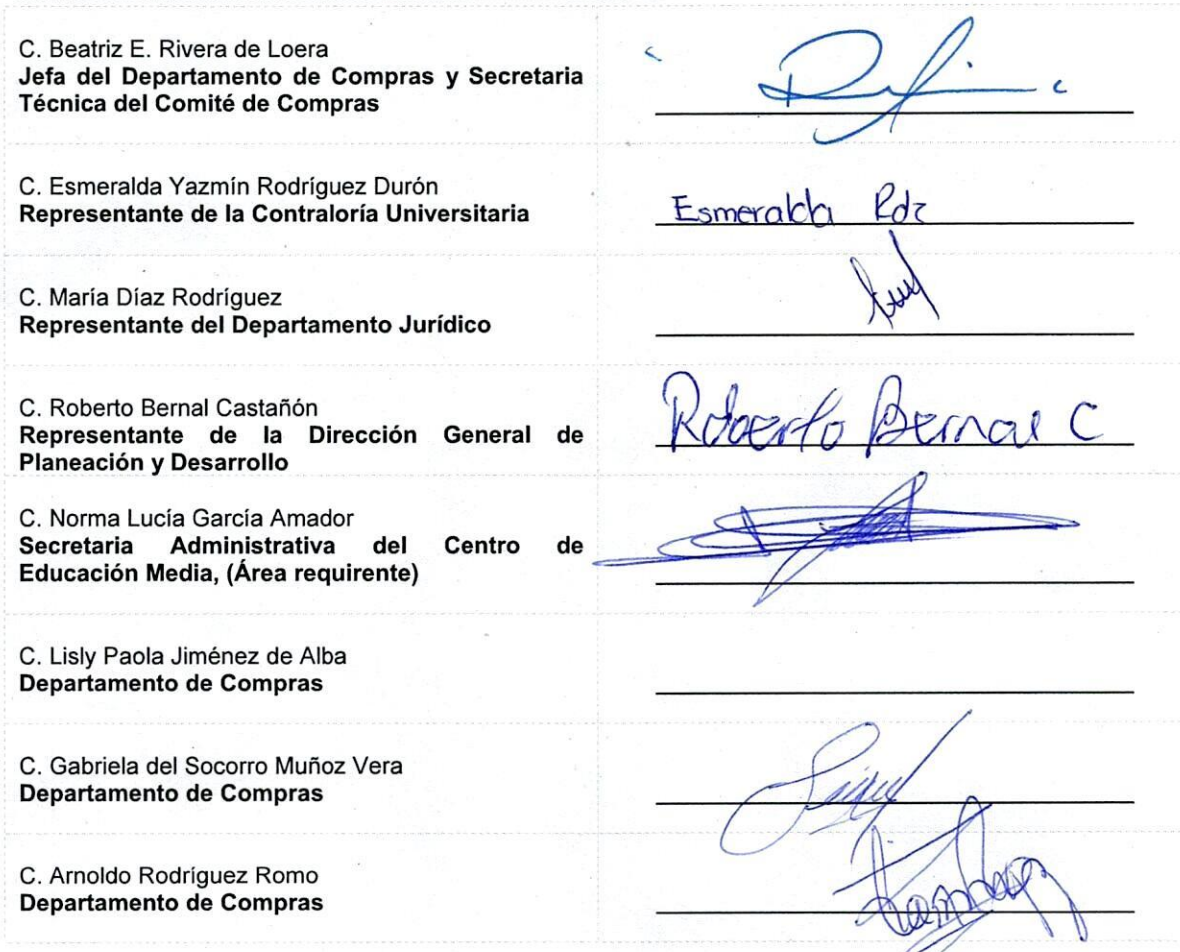 C. Beatriz E. Rivera de Loera
Jefa del Departamento de Compras y Secretaria
Técnica del Comité de Compras
C. Esmeralda Yazmín Rodríguez Durón
Representante de la Contraloría Universitaria
Esmeralda Rdz
C. María Díaz Rodríguez
Representante del Departamento Jurídico
C. Roberto Bernal Castañón
Representante de la Dirección General de
Planeación y Desarrollo
Roberto Bernal C
C. Norma Lucía García Amador
Secretaria Administrativa del Centro de
Educación Media, (Área requirente)
C. Lisly Paola Jiménez de Alba
Departamento de Compras
C. Gabriela del Socorro Muñoz Vera
Departamento de Compras
C. Arnoldo Rodríguez Romo
Departamento de Compras